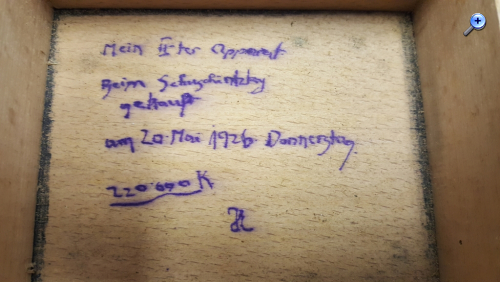 Mein II ter Apparat
Beim
gekauft
am 20. Mai 1926 Donnerstag
220.000 K